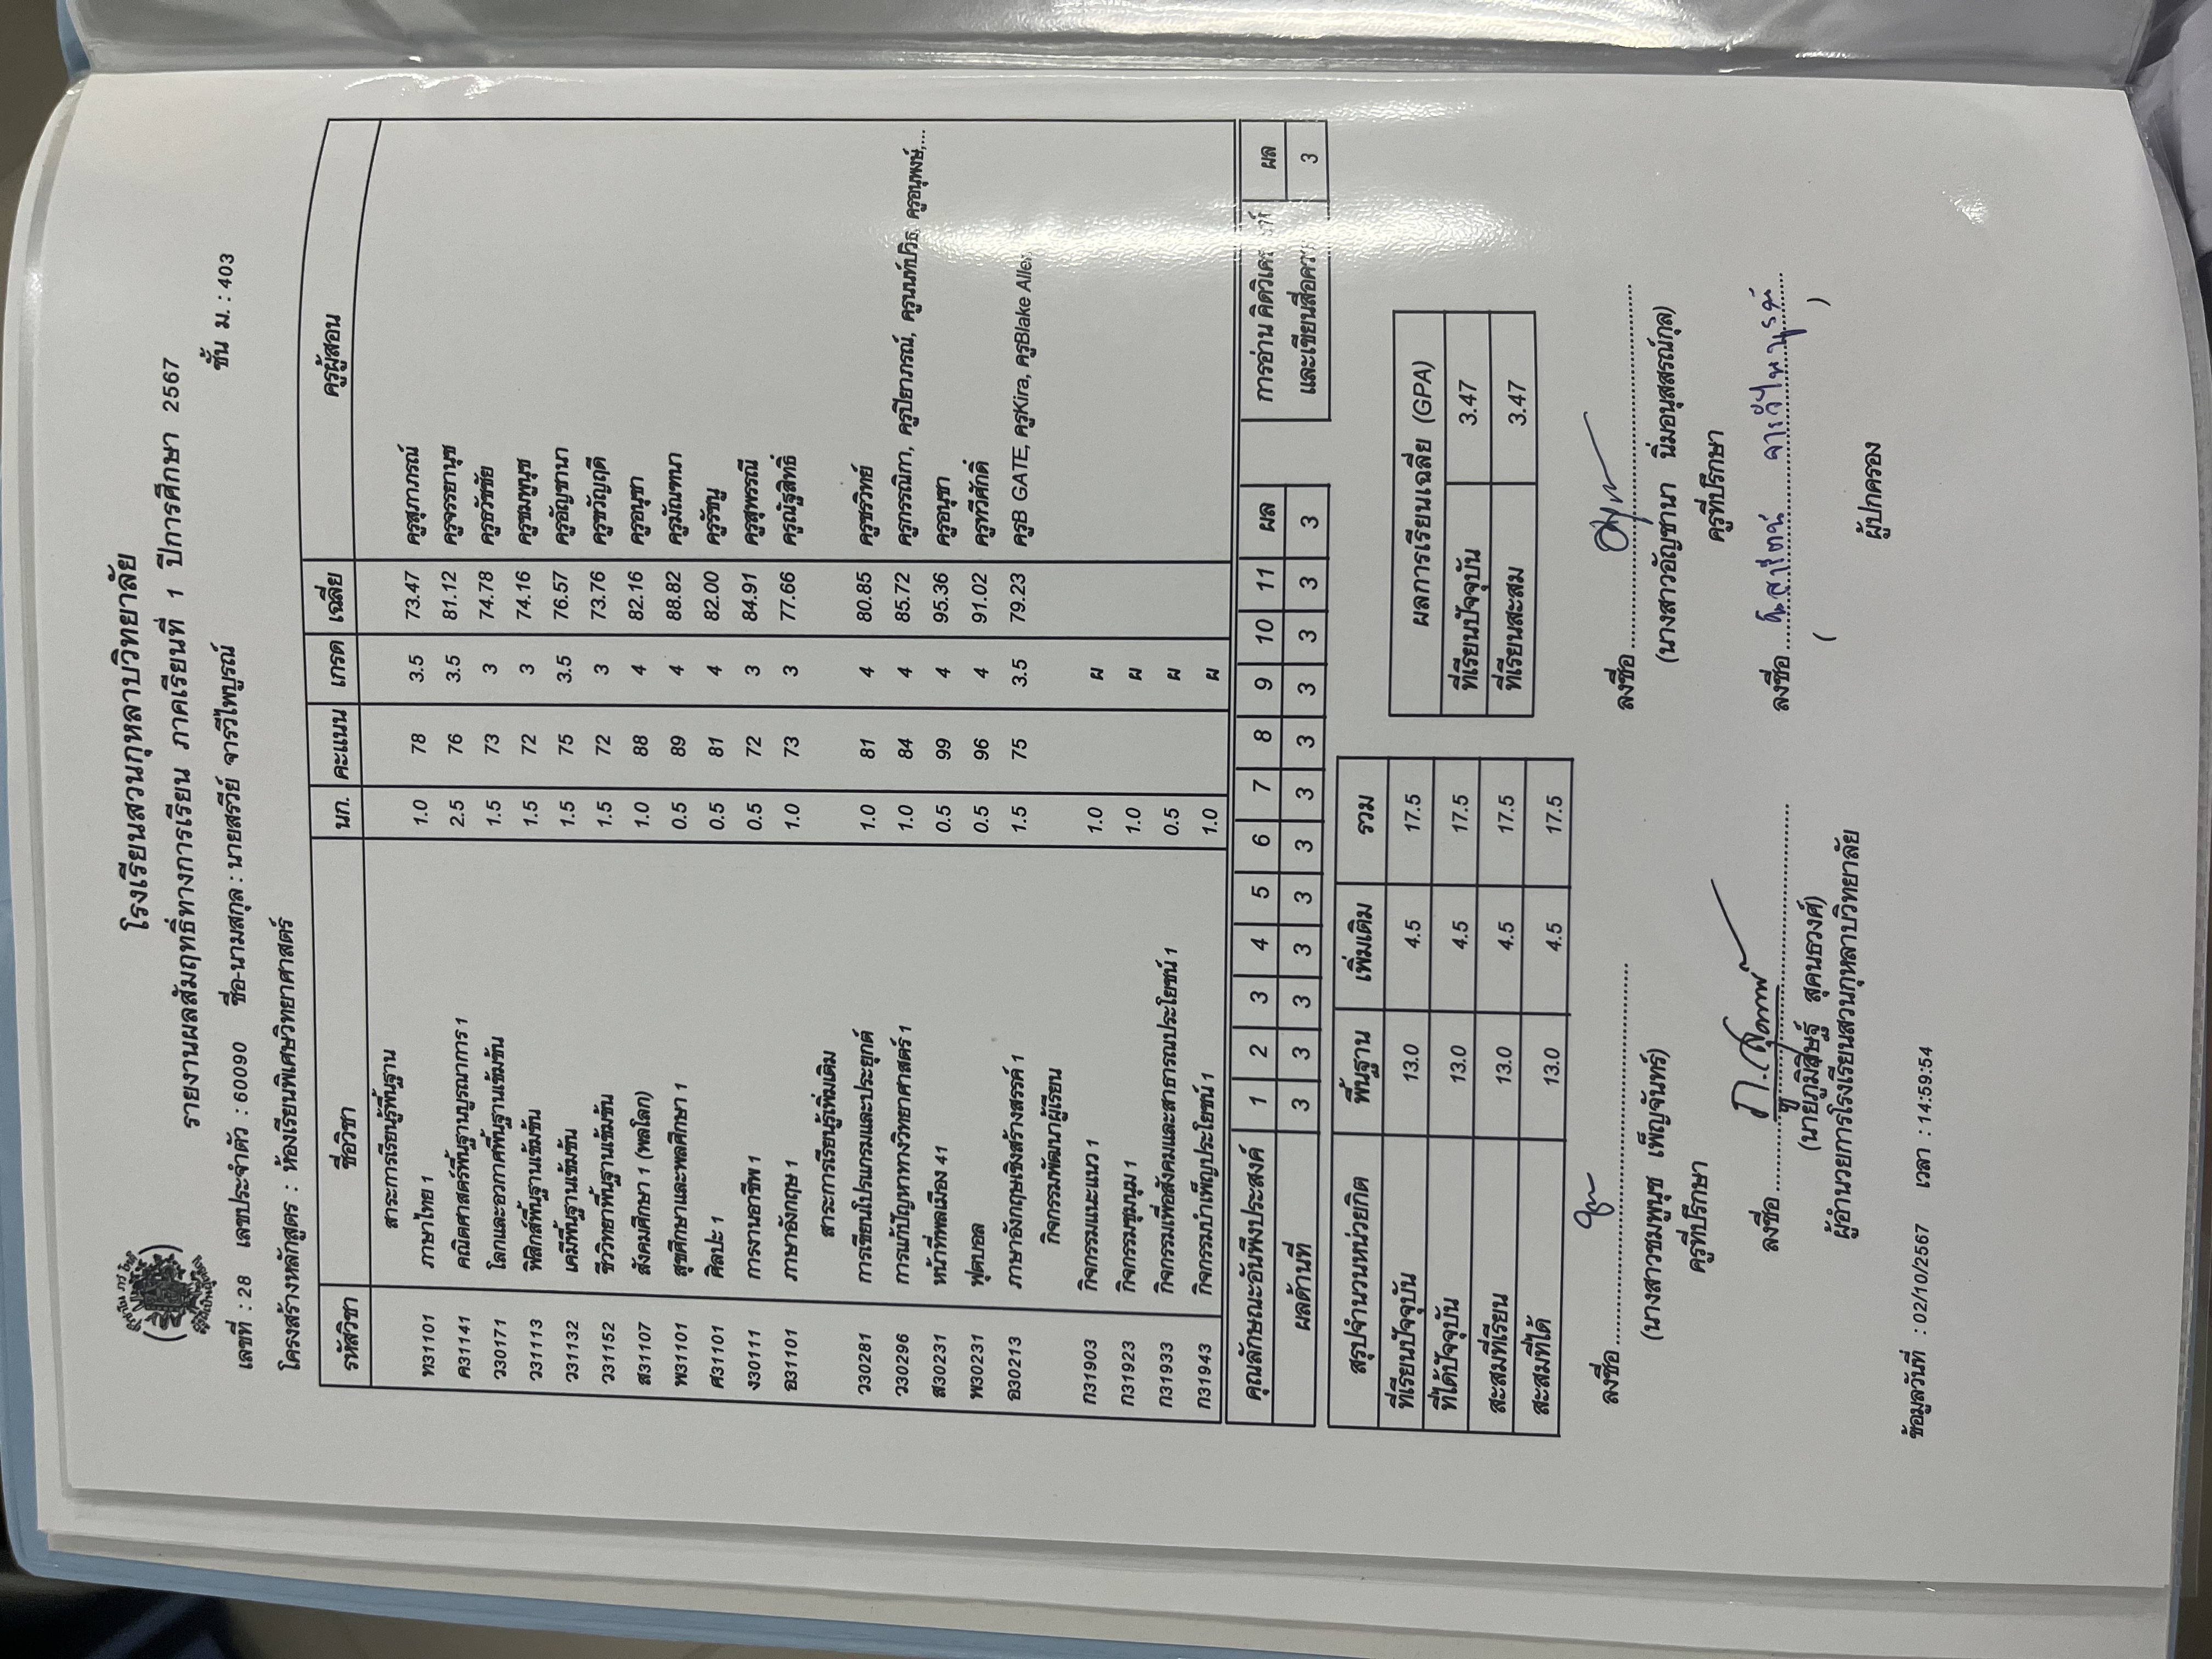 โรงเรียนสวนกุหลาบวิทยาลัย
รายงานผลสัมฤทธิ์ทางการเรียน ภาคเรียนที่ 1 ปีการศึกษา 2567
เลขที่ : 28 เลขประจำตัว : 60090 ชื่อ-นามสกุล : นายสรวีย์ จารวีไพบูรณ์ ชั้น ม. : 403
โครงสร้างหลักสูตร : ห้องเรียนพิเศษวิทยาศาสตร์
รหัสวิชา ชื่อวิชา นก. คะแนน เกรด เฉลี่ย ครูผู้สอน
สาระการเรียนรู้พื้นฐาน
ท31101 ภาษาไทย 1 1.0 78 3.5 73.47 ครูสุภาภรณ์
ค31141 คณิตศาสตร์พื้นฐานบูรณาการ 1 2.5 76 3.5 81.12 ครูจรรยานุช
ว30171 โลกและอวกาศพื้นฐานเข้มข้น 1.5 73 3 74.78 ครูธวัชชัย
ว31113 ฟิสิกส์พื้นฐานเข้มข้น 1.5 72 3 74.16 ครูชมพูนุช
ว31132 เคมีพื้นฐานเข้มข้น 1.5 75 3.5 76.57 ครูอัญชานา
ว31152 ชีววิทยาพื้นฐานเข้มข้น 1.5 72 3 73.76 ครูขวัญฤดี
ส31107 สังคมศึกษา 1 (พลโลก) 1.0 88 4 82.16 ครูอนุชา
พ31101 สุขศึกษาและพลศึกษา 1 0.5 89 4 88.82 ครูมัณฑนา
ศ31101 ศิลปะ 1 0.5 81 4 82.00 ครูรัชนู
ง30111 การงานอาชีพ 1 0.5 72 3 84.91 ครูสุพรรณี
อ31101 ภาษาอังกฤษ 1 1.0 73 3 77.66 ครูณัฐสิทธิ์
สาระการเรียนรู้เพิ่มเติม
ว30281 การเขียนโปรแกรมและประยุกต์ 1.0 81 4 80.85 ครูชรวิทย์
ว30296 การแก้ปัญหาทางวิทยาศาสตร์ 1 1.0 84 4 85.72 ครูกรรณิกา, ครูปิยาภรณ์, ครูนนท์ปวิธ, ครูอนุพงษ์,...
ส30231 หน้าที่พลเมือง 41 0.5 99 4 95.36 ครูอนุชา
พ30231 ฟุตบอล 0.5 96 4 91.02 ครูทวีศักดิ์
อ30213 ภาษาอังกฤษเชิงสร้างสรรค์ 1 1.5 75 3.5 79.23 ครูB GATE, ครูKira, ครูBlake Allen
กิจกรรมพัฒนาผู้เรียน
ก31903 กิจกรรมแนะแนว 1 1.0 ผ
ก31923 กิจกรรมชุมนุม 1 1.0 ผ
ก31933 กิจกรรมเพื่อสังคมและสาธารณประโยชน์ 1 0.5 ผ
ก31943 กิจกรรมบำเพ็ญประโยชน์ 1 1.0 ผ
คุณลักษณะอันพึงประสงค์ 1 2 3 4 5 6 7 8 9 10 11 ผล การอ่าน คิดวิเคราะห์ ผล
ผลด้านที่ 3 3 3 3 3 3 3 3 3 3 3 3 และเขียนสื่อความ 3
สรุปจำนวนหน่วยกิต พื้นฐาน เพิ่มเติม รวม
ที่เรียนปัจจุบัน 13.0 4.5 17.5
ที่ได้ปัจจุบัน 13.0 4.5 17.5
สะสมที่เรียน 13.0 4.5 17.5
สะสมที่ได้ 13.0 4.5 17.5
ผลการเรียนเฉลี่ย (GPA)
ที่เรียนปัจจุบัน 3.47
ที่เรียนสะสม 3.47
ลงชื่อ
(นางสาวชมพูนุช เพ็ญจันทร์)
ครูที่ปรึกษา
ลงชื่อ
(นางสาวอัญชานา นิ่มอนุสสรณ์กุล)
ครูที่ปรึกษา
ลงชื่อ
(นายภูมิสิษฐ์ สุคนธวงศ์)
ผู้อำนวยการโรงเรียนสวนกุหลาบวิทยาลัย
ลงชื่อ
( )
ผู้ปกครอง
ข้อมูลวันที่ : 02/10/2567 เวลา : 14:59:54